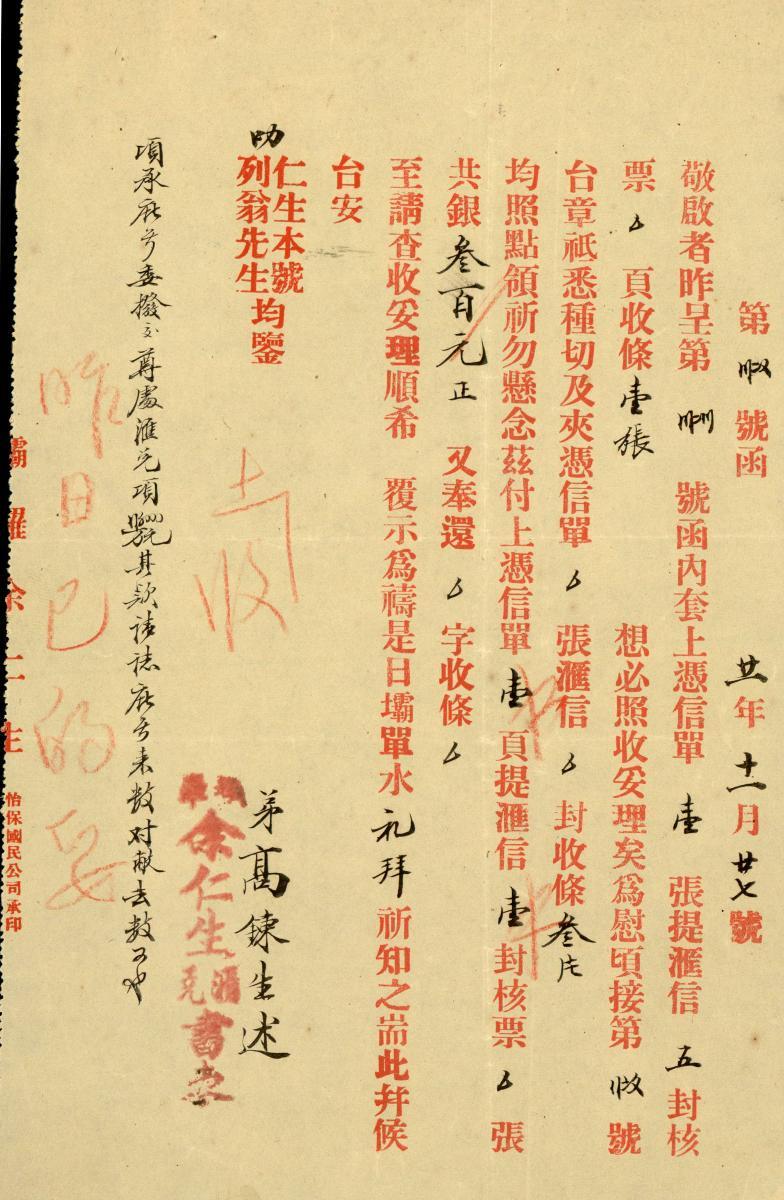 第 號函 廿一年 十一月 廿七 號
敬啟者昨呈第 號函內套上憑信單 壹 張提滙信 五 封核
票 頁收條 壹張 想必照收妥理矣爲慰頃接第 號
台章祇悉種切及夾憑信單 張滙信 封收條 叁
均照點領祈勿懸念茲付上憑信單 壹 頁提滙信 壹 封核票 張
共銀 叁百元正 又奉還 字收條
至請查收妥理順希 覆示爲禱是日壩單水 礼拜 祈知之耑此幷候
台安
叻 仁生本號
列翁先生 均鑒
弟高鍊生述
余仁生 書柬
項承 委撥交尊處滙 項 其款 数对 去数
上 收
昨日已 妥
壩羅余仁生 怡保國民公司承印